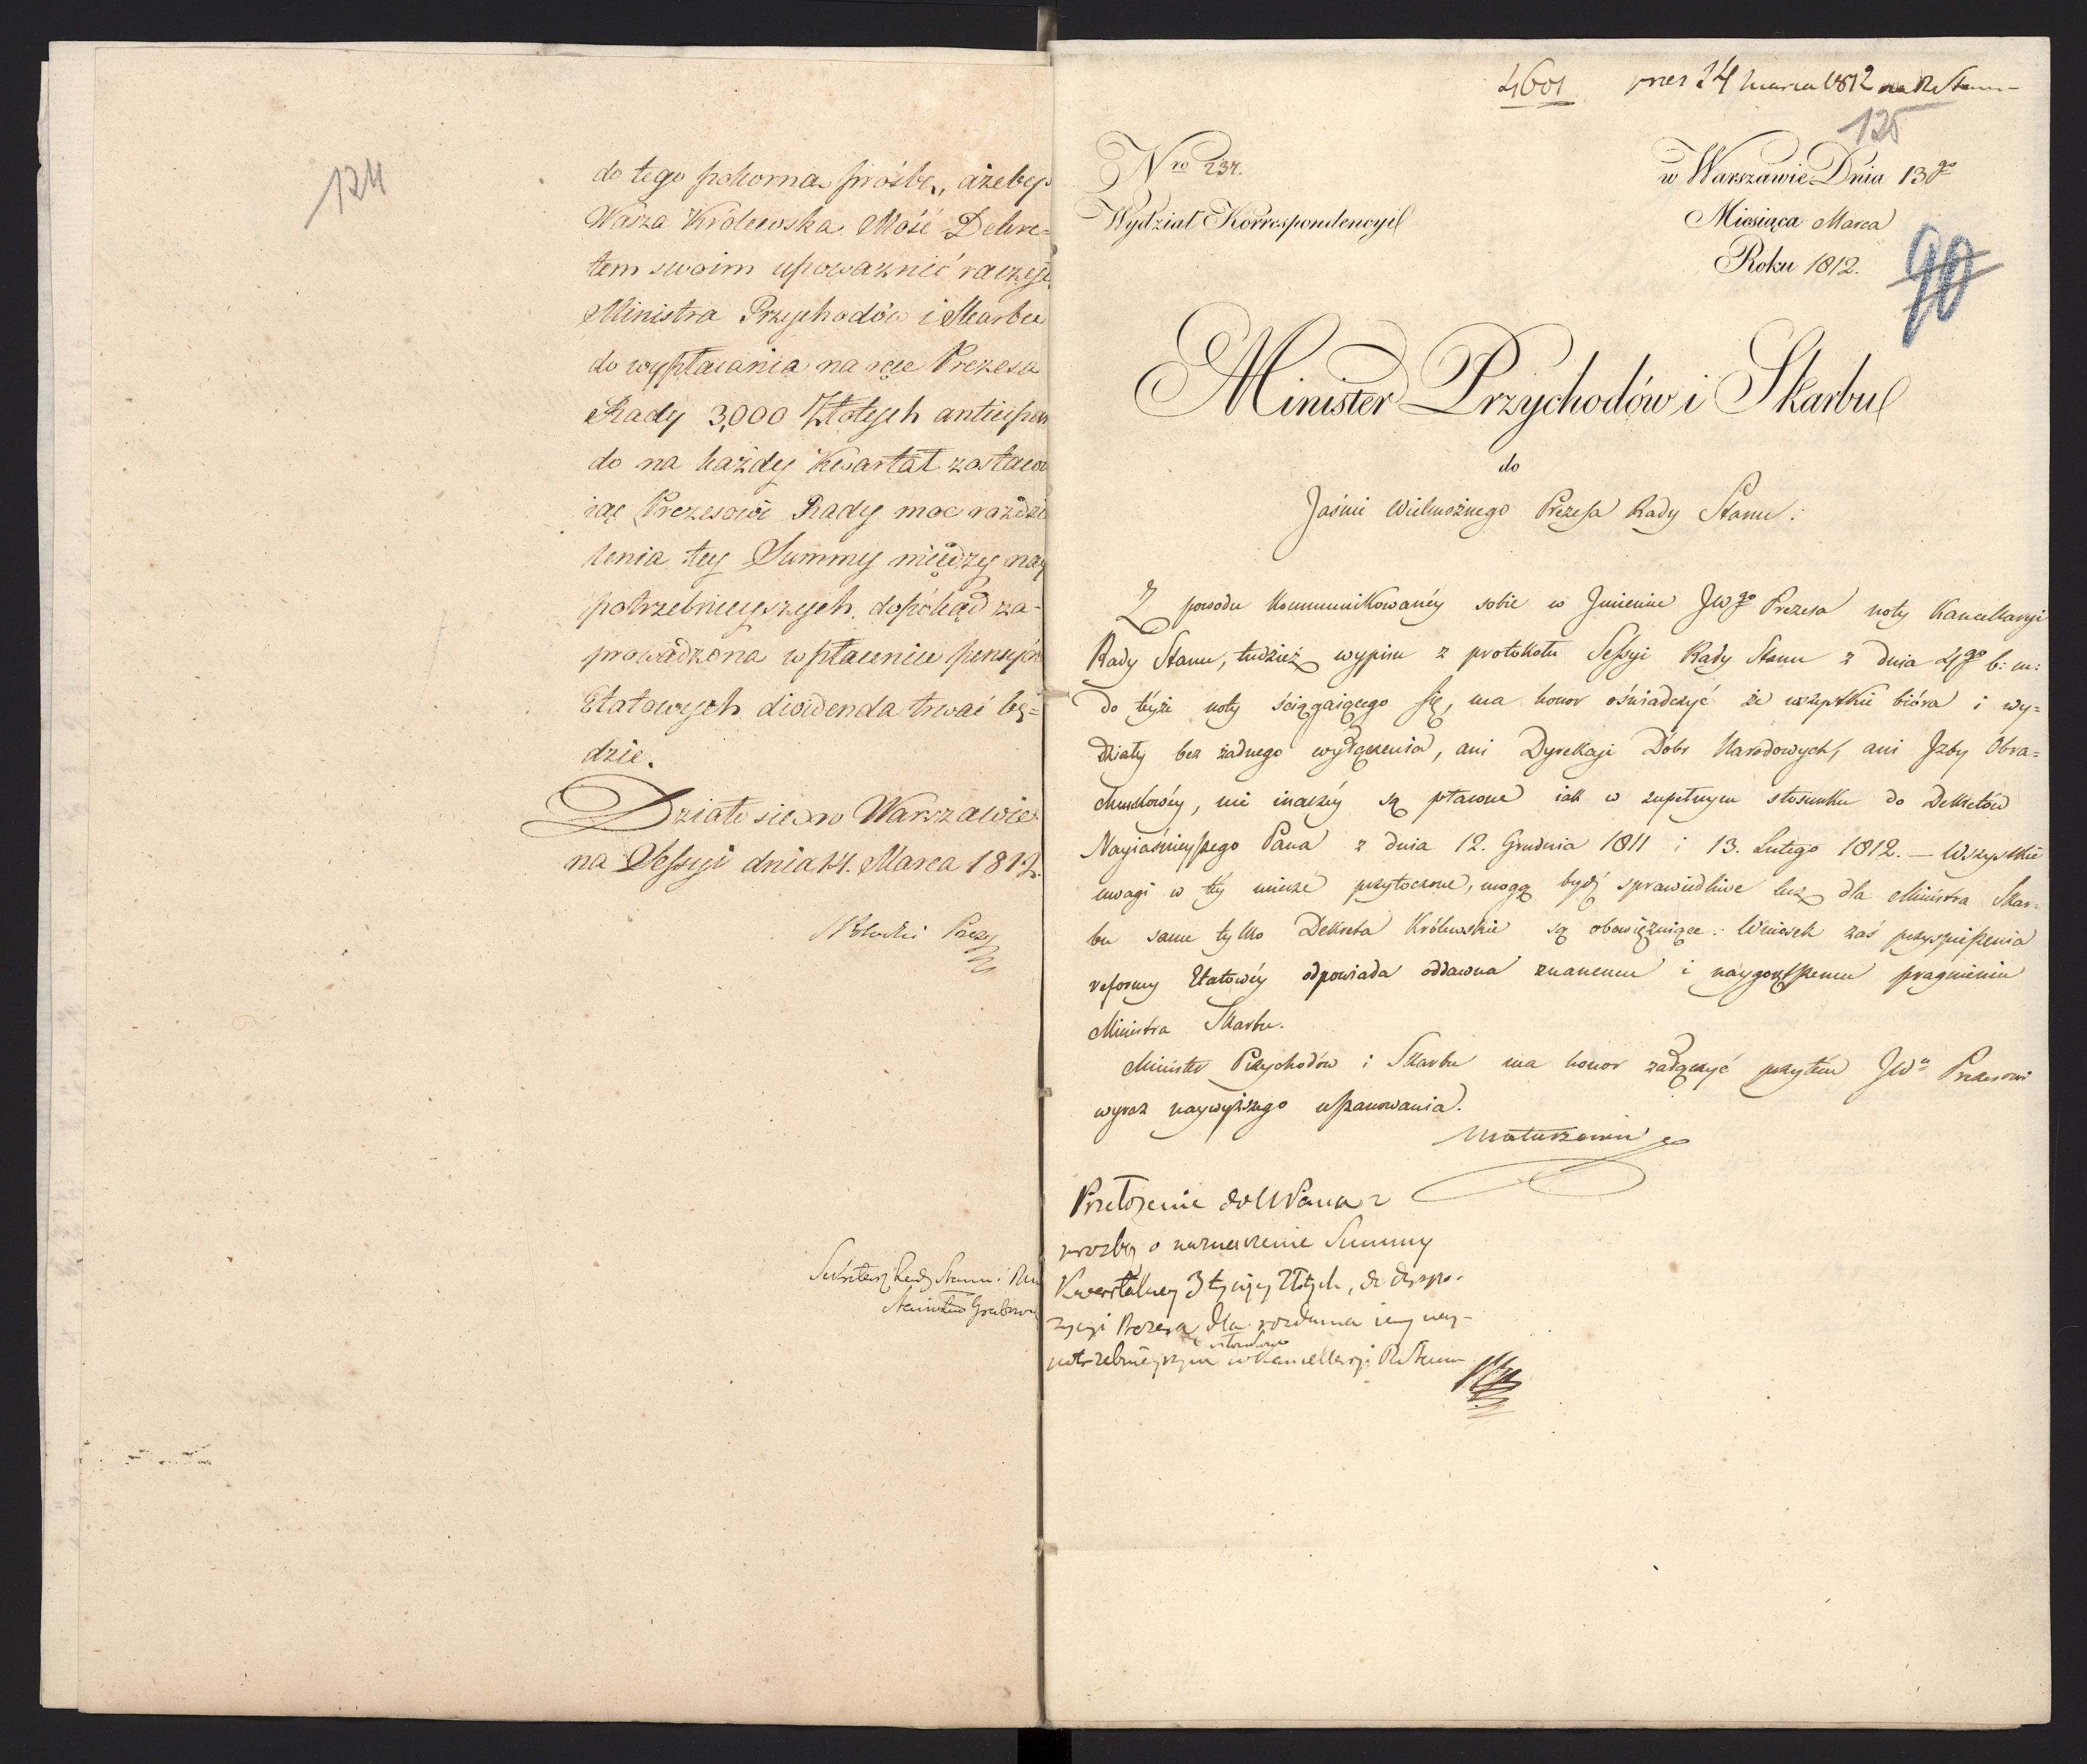 124
do tego pokorną prośbę, ażebyś
Wasza Królewska Mość Dekre=
tem swoim upoważnić raczył
Ministra Przychodów i Skarbu
do wypłacania na ręce Prezesa
Rady 3,000 Złotych anticipan
do na każdy Kwartał zostawu
iąc Prezesowi Rady moc rozdzie
lenia tey Summy między nay
potrzebnieyszych, dopókąd za-
prowadzona w płacenciu pensyów
Etatowych dividenda trwać bę=
dzie.
Działo się w Warszawie
na Sessyi dnia 14. Marca 1812.
Prezes
Sekretarz Rady Stanu i
Stanisław Grabowski
4601 24 marca 1812 na R Stanu
125
Nro 237.
w Warszawie Dnia 13go
Wydział Korrespondencyi
Miesiąca Marca
Roku 1812.
90
Minister Przychodów i Skarbu
do
Jaśnie Wielmożnego Prezesa Rady Stanu.
Z powodu kommunikowanéy sobie w Jmieniu JWgo Prezesa noty Kancellaryi
Rady Stanu, tudzież wypisu z protokołu Sessyi Rady Stanu z dnia 4go b: m:
do téyże noty ściągaiącego się, ma honor oświadczyć że wszystkie bióra i wy=
działy bez żadnego wyłączenia, ani Dyrekcyi Dóbr Narodowych, ani Jzby Obra=
chunkowéy, nie inaczéy są płacone iak w zupełnym stosunku do Dekretów
Nayiaśnieyszego Pana z dnia 12. Grudnia 1811 i 13. Lutego 1812. — Wszystkie
uwagi w téy mierze przytoczone, mogą bydź sprawiedliwe lecz dla Ministra Skar=
bu same tylko Dekreta Królewskie są obowięzuiące: Wniosek zaś przyspieszenia
reformy Etatowéy odpowiada oddawna znanemu i naygorętszemu pragnieniu
Ministra Skarbu.
Minister Przychodów i Skarbu ma honor załączyć przytém JWu Prezesowi
wyraz naywyższego uszanowania.
Matuszewic
Przełożenie do NPana z
prozbą o naznaczenie Summy
Kwartalney 3 tysięcy Złotych, do dyspo-
zycyi Prezesa dla rozdania iey nay-
potrzebnieyszym w Kancellaryi R Stanu